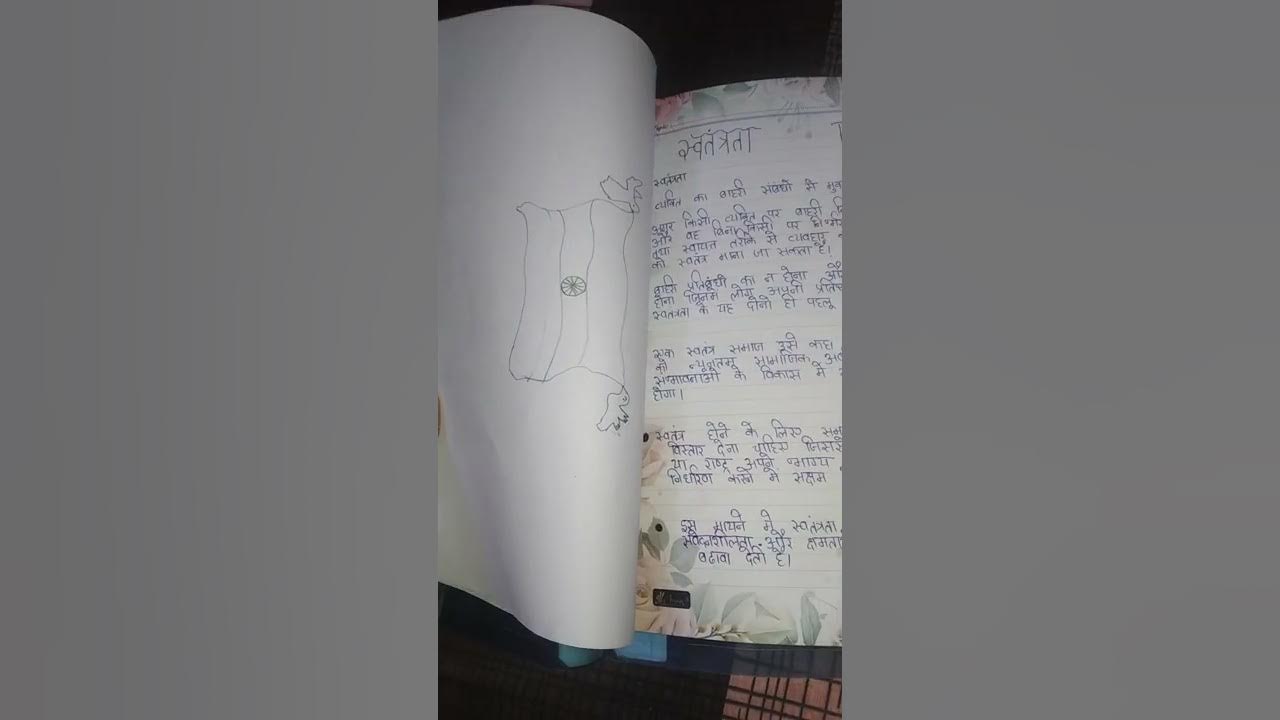 स्वतंत्रता
स्वतंत्रता
व्यक्ति का बाहरी संबंधों से
अगर किसी व्यक्ति पर बाहरी
और वह बिना किसी पर
तथा स्वायत्त तरीके से व्यवहार
को स्वतंत्र माना जा सकता है।
बाहरी प्रतिबंधों का न होना और
होना लोग अपनी
स्वतंत्रता के यह दोनों ही पहलू
एक स्वतंत्र समाज उसे कहा
को न्यूनतम सामाजिक
सम्भावनाओं के विकास में
होगा।
स्वतंत्र होने के लिए
विस्तार देना चाहिए जिससे
या राष्ट्र अपने भाग्य
निर्धारण करने में सक्षम
इस मायने में स्वतंत्रता
और क्षमता
बढ़ावा देती है।